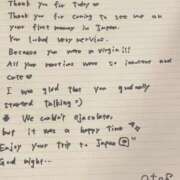 Thank you for today
Thank you for coming to see me as
your first mommy in Japan.
You looked very nervous.
Because you were a virgin!!!
All your reactions were so innocent and
cute
I was glad that you gradually
started talking :)
We couldn't ejaculate,
but it was a happy time
Enjoy your trip to Japan
Good night...